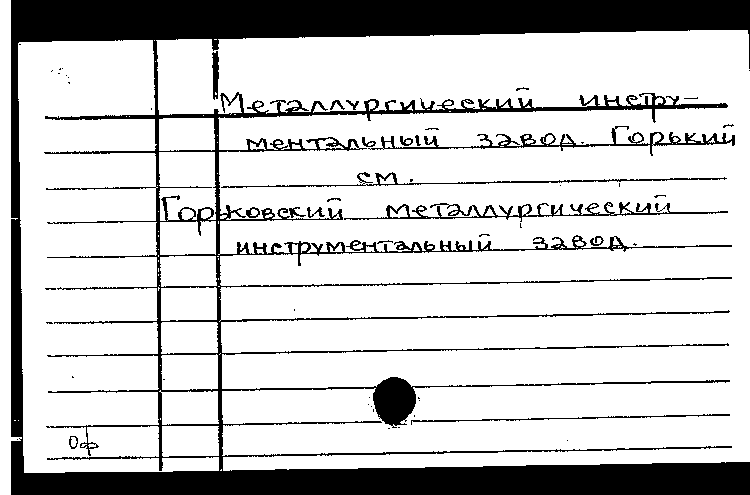 Металлургический инстру-
ментальный завод. Горький
см.
Горьковский металлургический
инструментальный завод.
Оф